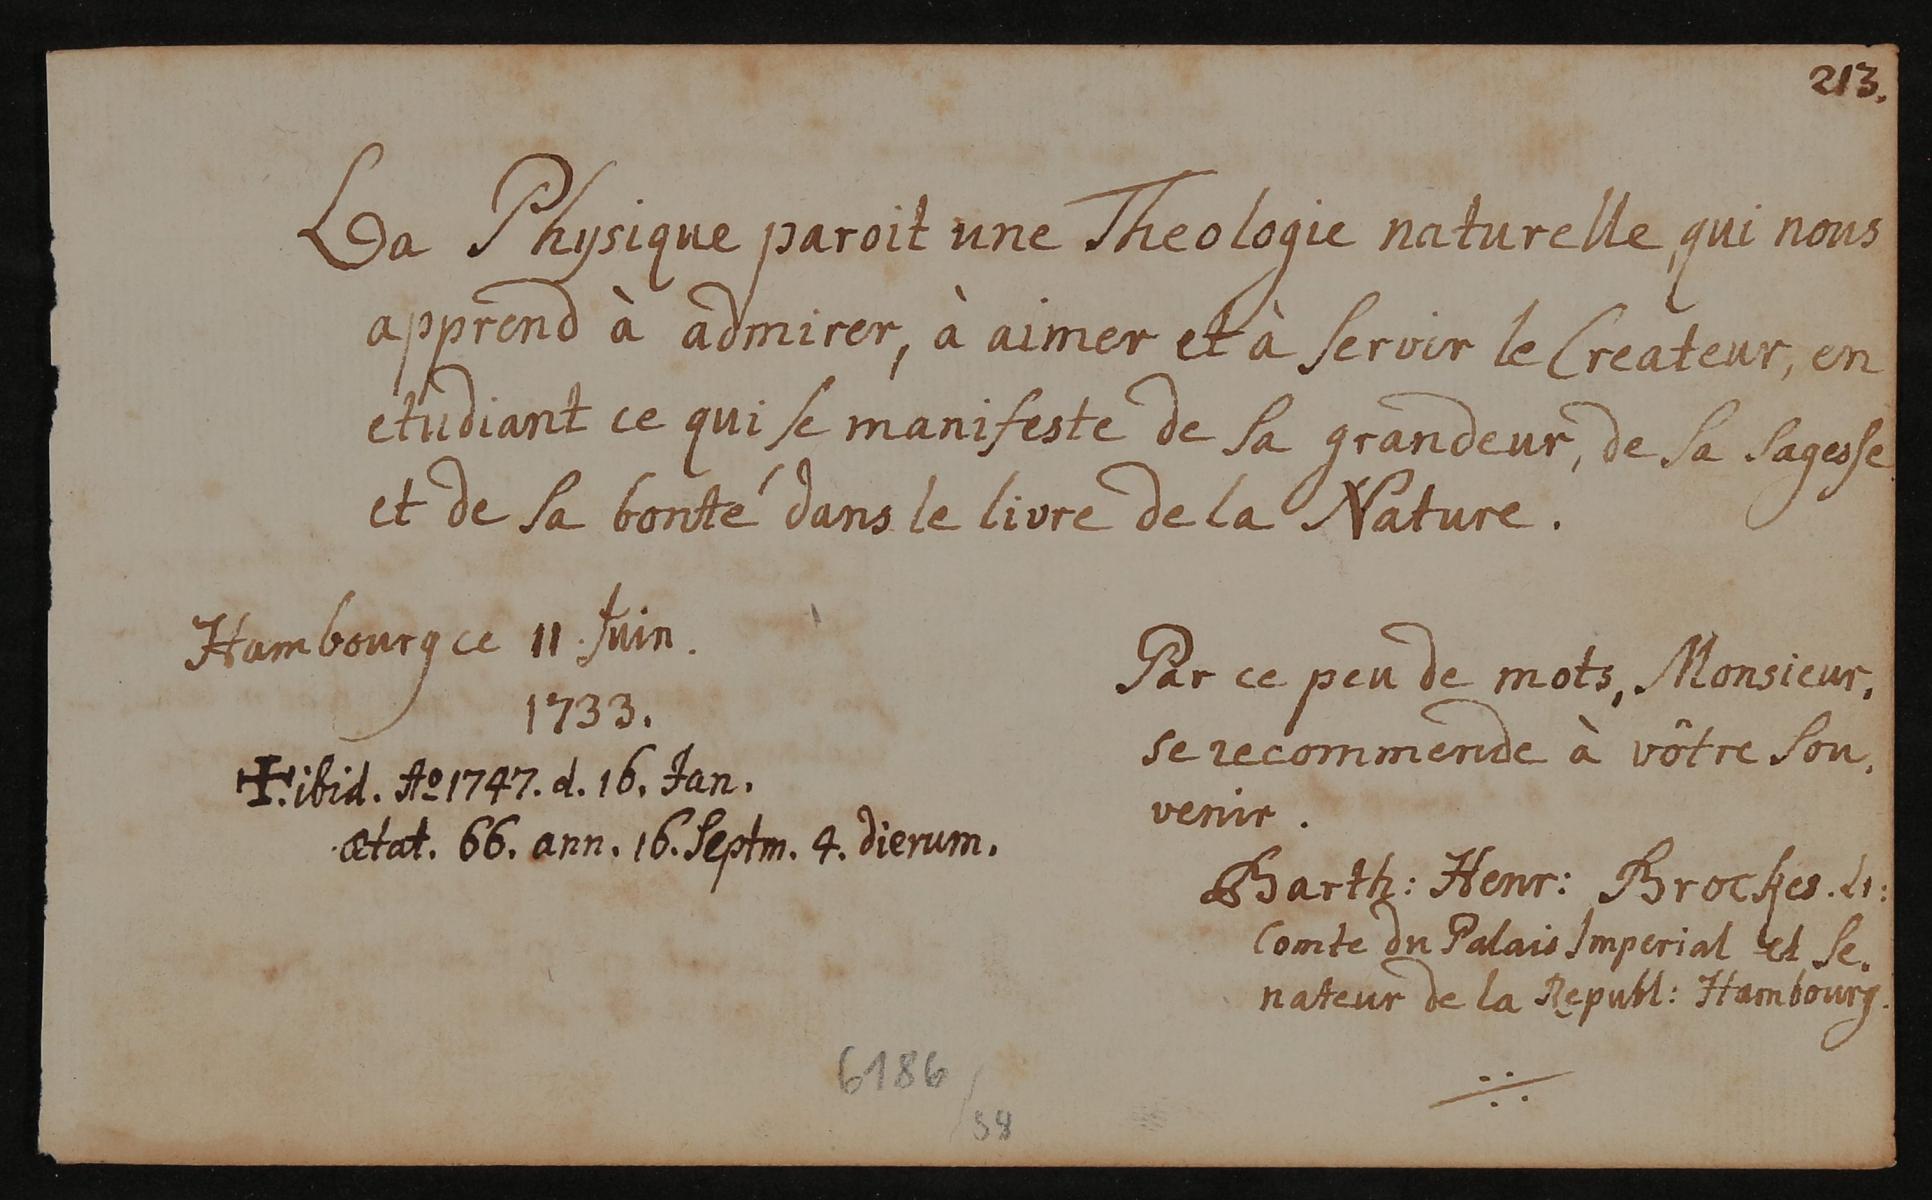 213.
La Physique paroit une Theologie naturelle, qui nous
apprend à admirer, à aimer et à servir le Createur, en
etudiant ce qui se manifeste de sa grandeur, de sa sagesse
et de sa bonté dans le livre de la Nature.
Hambourg ce 11. Juin.
1733.
✠. ibid. Aº 1747. d. 16. Jan.
ætat. 66. ann. 16. Septm. 4. dierum.
Par ce peu de mots, Monsieur,
se recommende à vôtre sou,
venir.
Barth: Henr: Brockes. L:
Comte du Palais Imperial et Se,
nateur de la Republ: Hambourg.
6186
/58